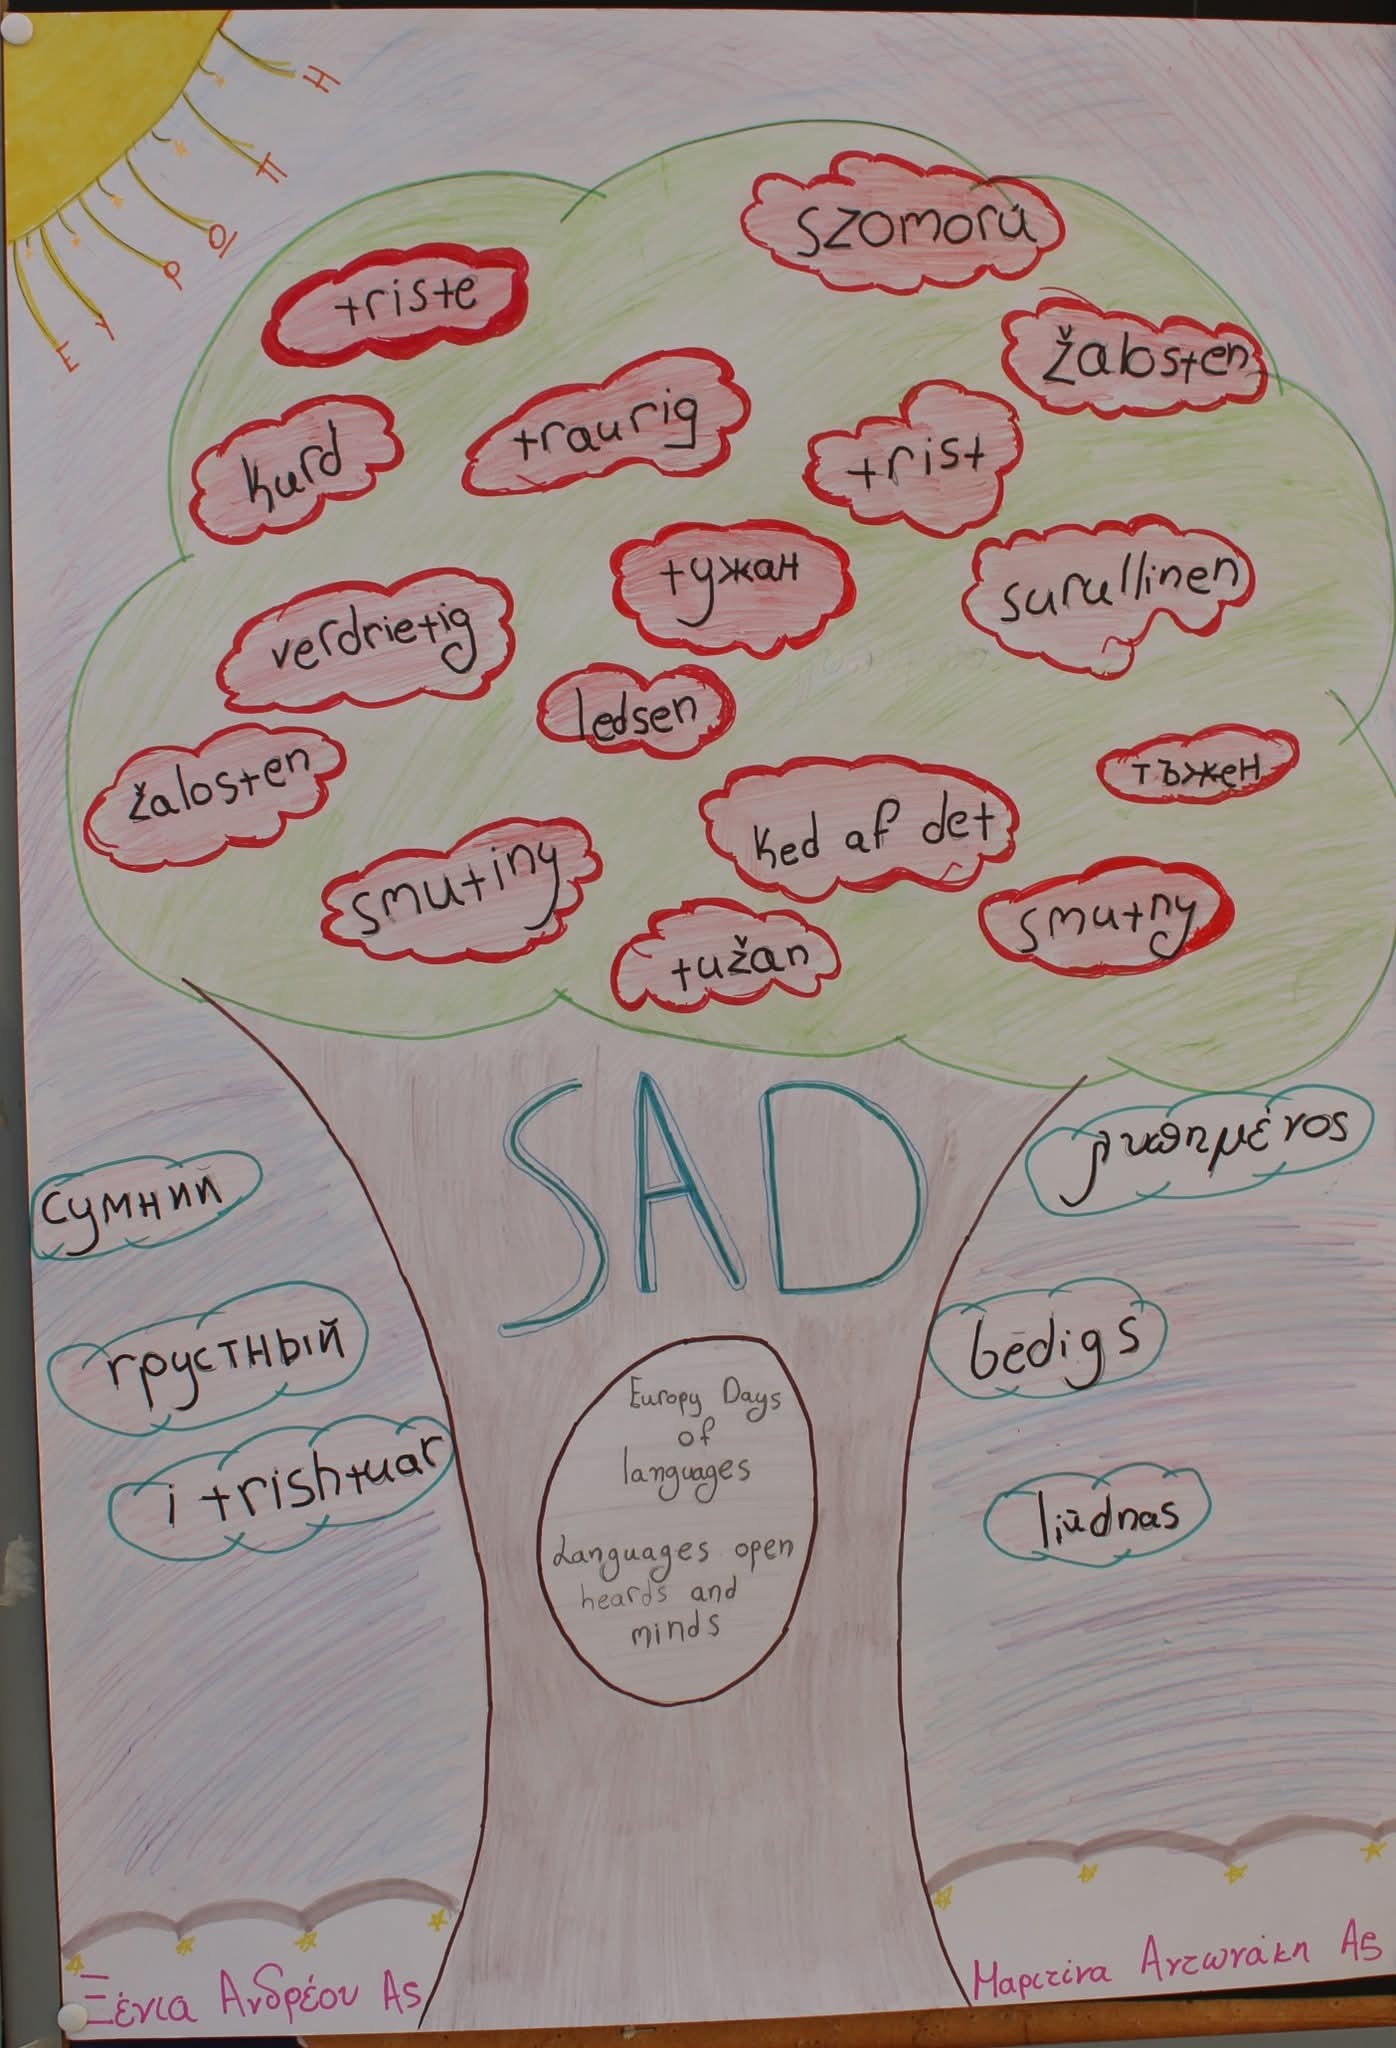 ΕΥΡΩΠΗ
szomorú
triste
žalosten
kurd
traurig
trist
тужан
surullinen
verdrietig
ledsen
žalosten
тъжен
ked af det
smutiny
smutny
tužan
SAD
λυπημένος
сумний
bēdīgs
грустный
i trishtuar
liūdnas
Europy Days
of
languages
Languages open
heards and
minds
Ξένια Ανδρέου Ας
Μαριτίνα Αντωνάκη Ας